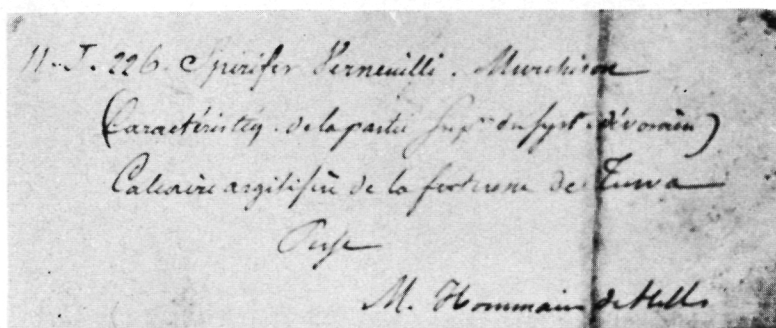 11. J. 226. Spirifer Verneuilli. Murchison
(Caractéristiq. de la partie Supre du Syst. dévonien)
Calcaire argilifère de la forteresse de Tuwa
Perse
M. Hommaire de Hell